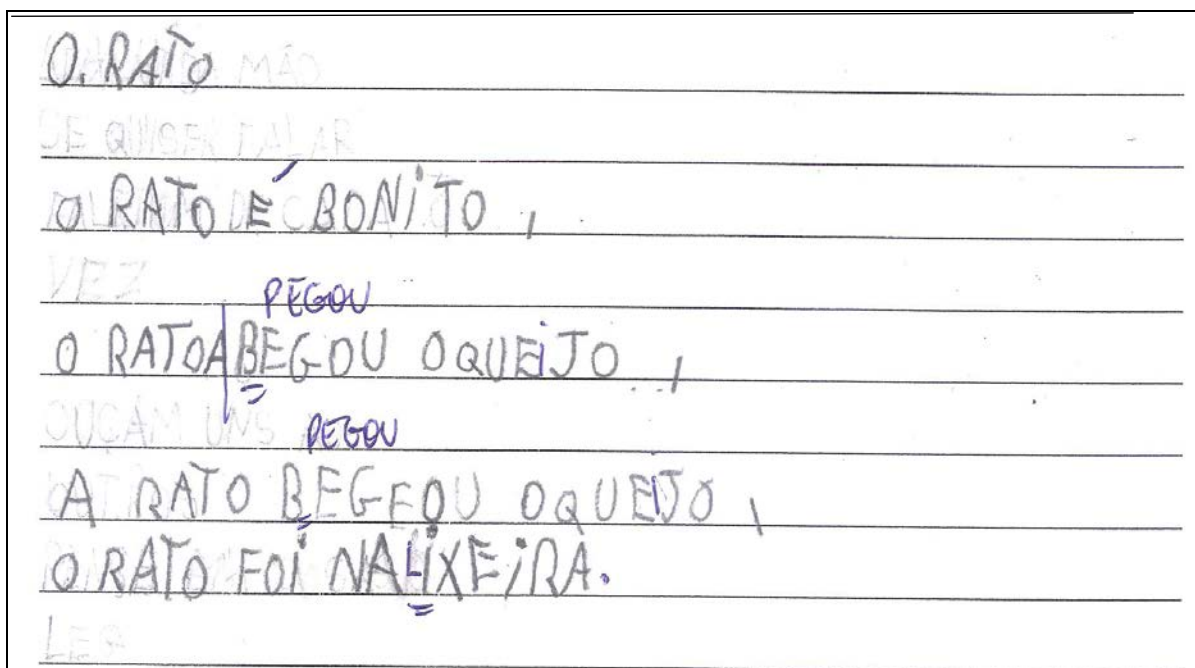 O. RATO
O RATO É BONITO ,
PEGOU
O RATOA|BEGOU OQUEiJO ,
PEGOU
A RATO BEGEOU OQUEiJO ,
O RATO FOi NALiXEiRA.